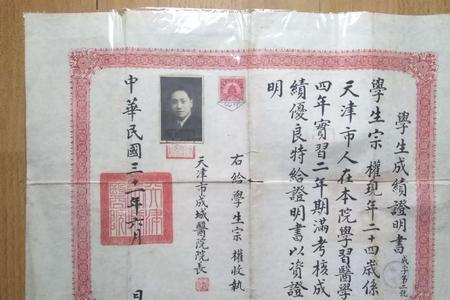 學生成績證明書
成字第二號
學生宗權現年二十四歲係
天津市人在本院學習醫學
四年實習二年期滿考核成
績優良特給證明書以資證
明
右給學生宗權收執
天津市成城醫院院長
中華民國三十一年六月
日